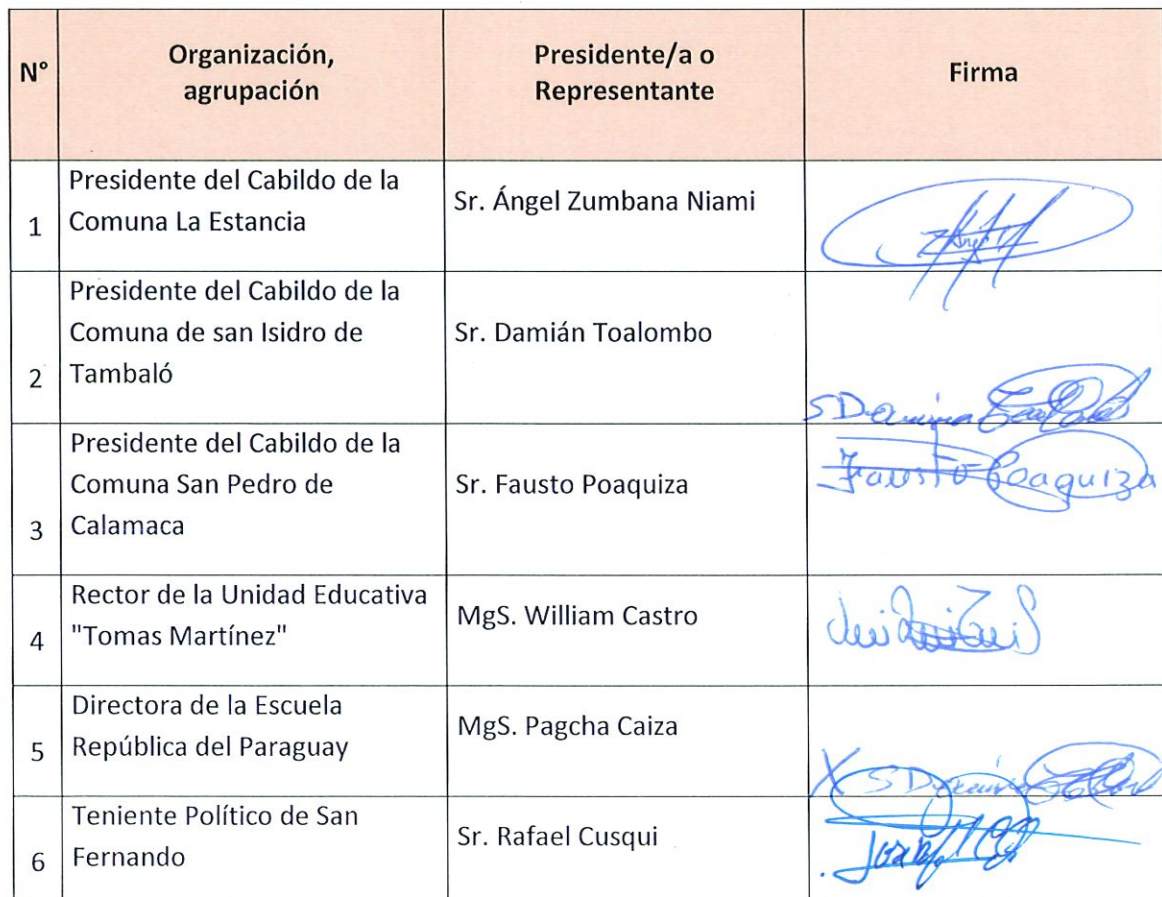 N°
Organización,
agrupación
Presidente/a o
Representante
Firma
1
Presidente del Cabildo de la
Comuna La Estancia
Sr. Ángel Zumbana Niami
2
Presidente del Cabildo de la
Comuna de san Isidro de
Tambaló
Sr. Damián Toalombo
3
Presidente del Cabildo de la
Comuna San Pedro de
Calamaca
Sr. Fausto Poaquiza
Fausto Poaquiza
4
Rector de la Unidad Educativa
"Tomas Martínez"
MgS. William Castro
5
Directora de la Escuela
República del Paraguay
MgS. Pagcha Caiza
6
Teniente Político de San
Fernando
Sr. Rafael Cusqui